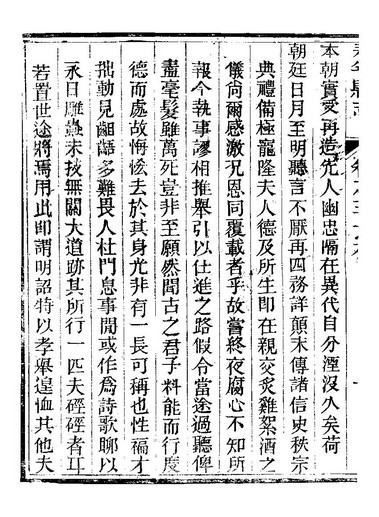 本朝實受再造先人幽忠隔在異代自分湮沒久矣荷
朝廷日月至明聽言不厭再四務詳顛末傳諸信史秩宗
典禮備極寵隆夫人德及所生即在親交炙雞絮酒之
儀尚爾感激況恩同覆載者乎故嘗終夜腐心不知所
報今執事謬相推舉引以仕進之路假令當途過聽俾
盡毫髮雖萬死豈非至願然聞古之君子料能而行度
德而處故悔悋去於其身尤非有一長可稱也性褊才
拙動見齟齬多難畏人杜門息事閒或作爲詩歌聊以
永日雕蟲末技無關大道跡其所行一匹夫硜硜者耳
若置世途將焉用此即謂明詔特以孝舉遑恤其他夫